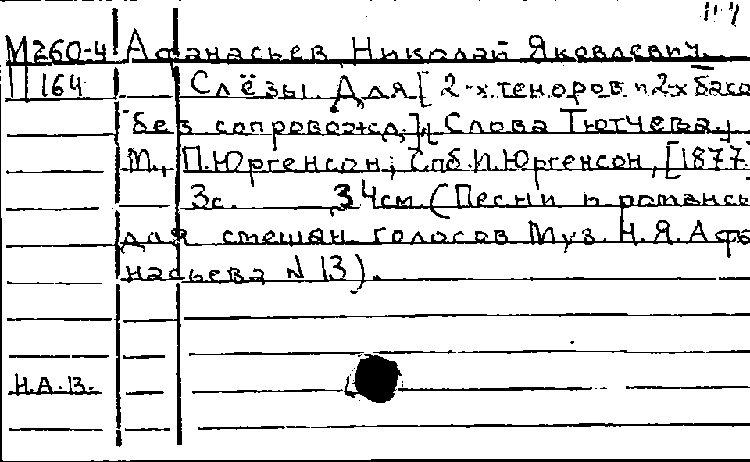 М260-4 Афанасьев Николай Яковлевич.
II 164 Слёзы. Для [2-х теноров и 2-х басо
без сопровожд.] Слова Тютчева.
М., П.Юргенсон; Спб. И.Юргенсон, [1877
3с. 34см (Песни и романсы
для смешан. голосов Муз. Н.Я.Афа
насьева N 13).
Н.А.В.